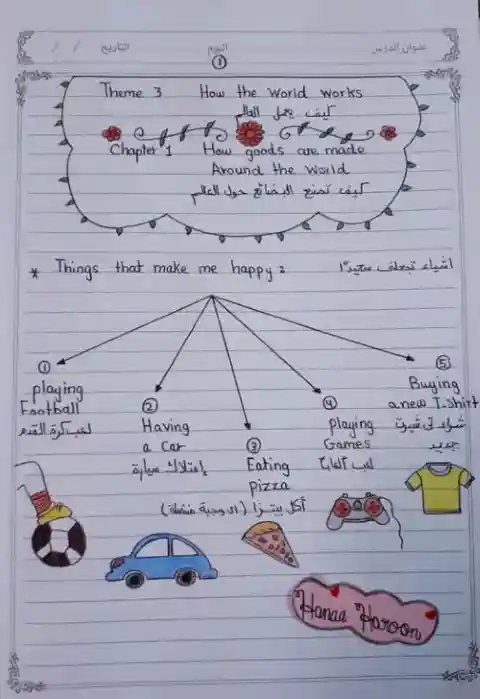 عنوان الدرس اليوم التاريخ / /
①
Theme 3 How the World Works
كيف يعمل العالم
Chapter 1 How goods are made
Around the World
كيف تصنع البضائع حول العالم
* Things that make me happy : اشياء تجعلني سعيدًا
①
playing
Football
لعب كرة القدم
②
Having
a car
إمتلاك سيارة
③
Eating
pizza
أكل بيتزا (الوجبة مفضلة)
④
playing
Games
لعب ألعاب
⑤
Buying
a new T-shirt
شراء تى شيرت
جديد
Hanaa Haroon